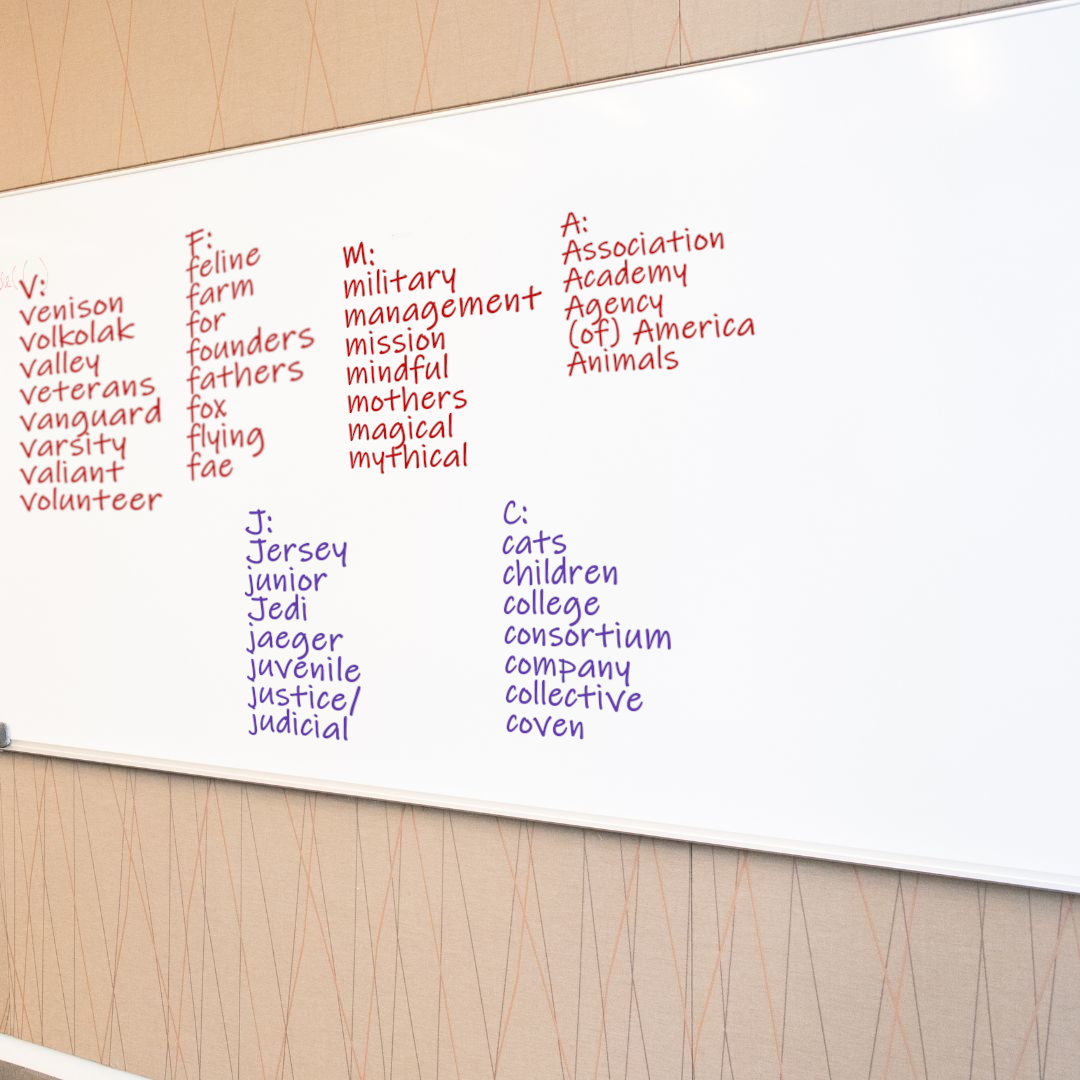 V:
venison
volkolak
valley
veterans
vanguard
varsity
valiant
volunteer
F:
feline
farm
for
founders
fathers
fox
flying
fae
M:
military
management
mission
mindful
mothers
magical
mythical
A:
Association
Academy
Agency
(of) America
Animals
J:
Jersey
junior
Jedi
jaeger
juvenile
justice/
judicial
C:
cats
children
college
consortium
company
collective
coven